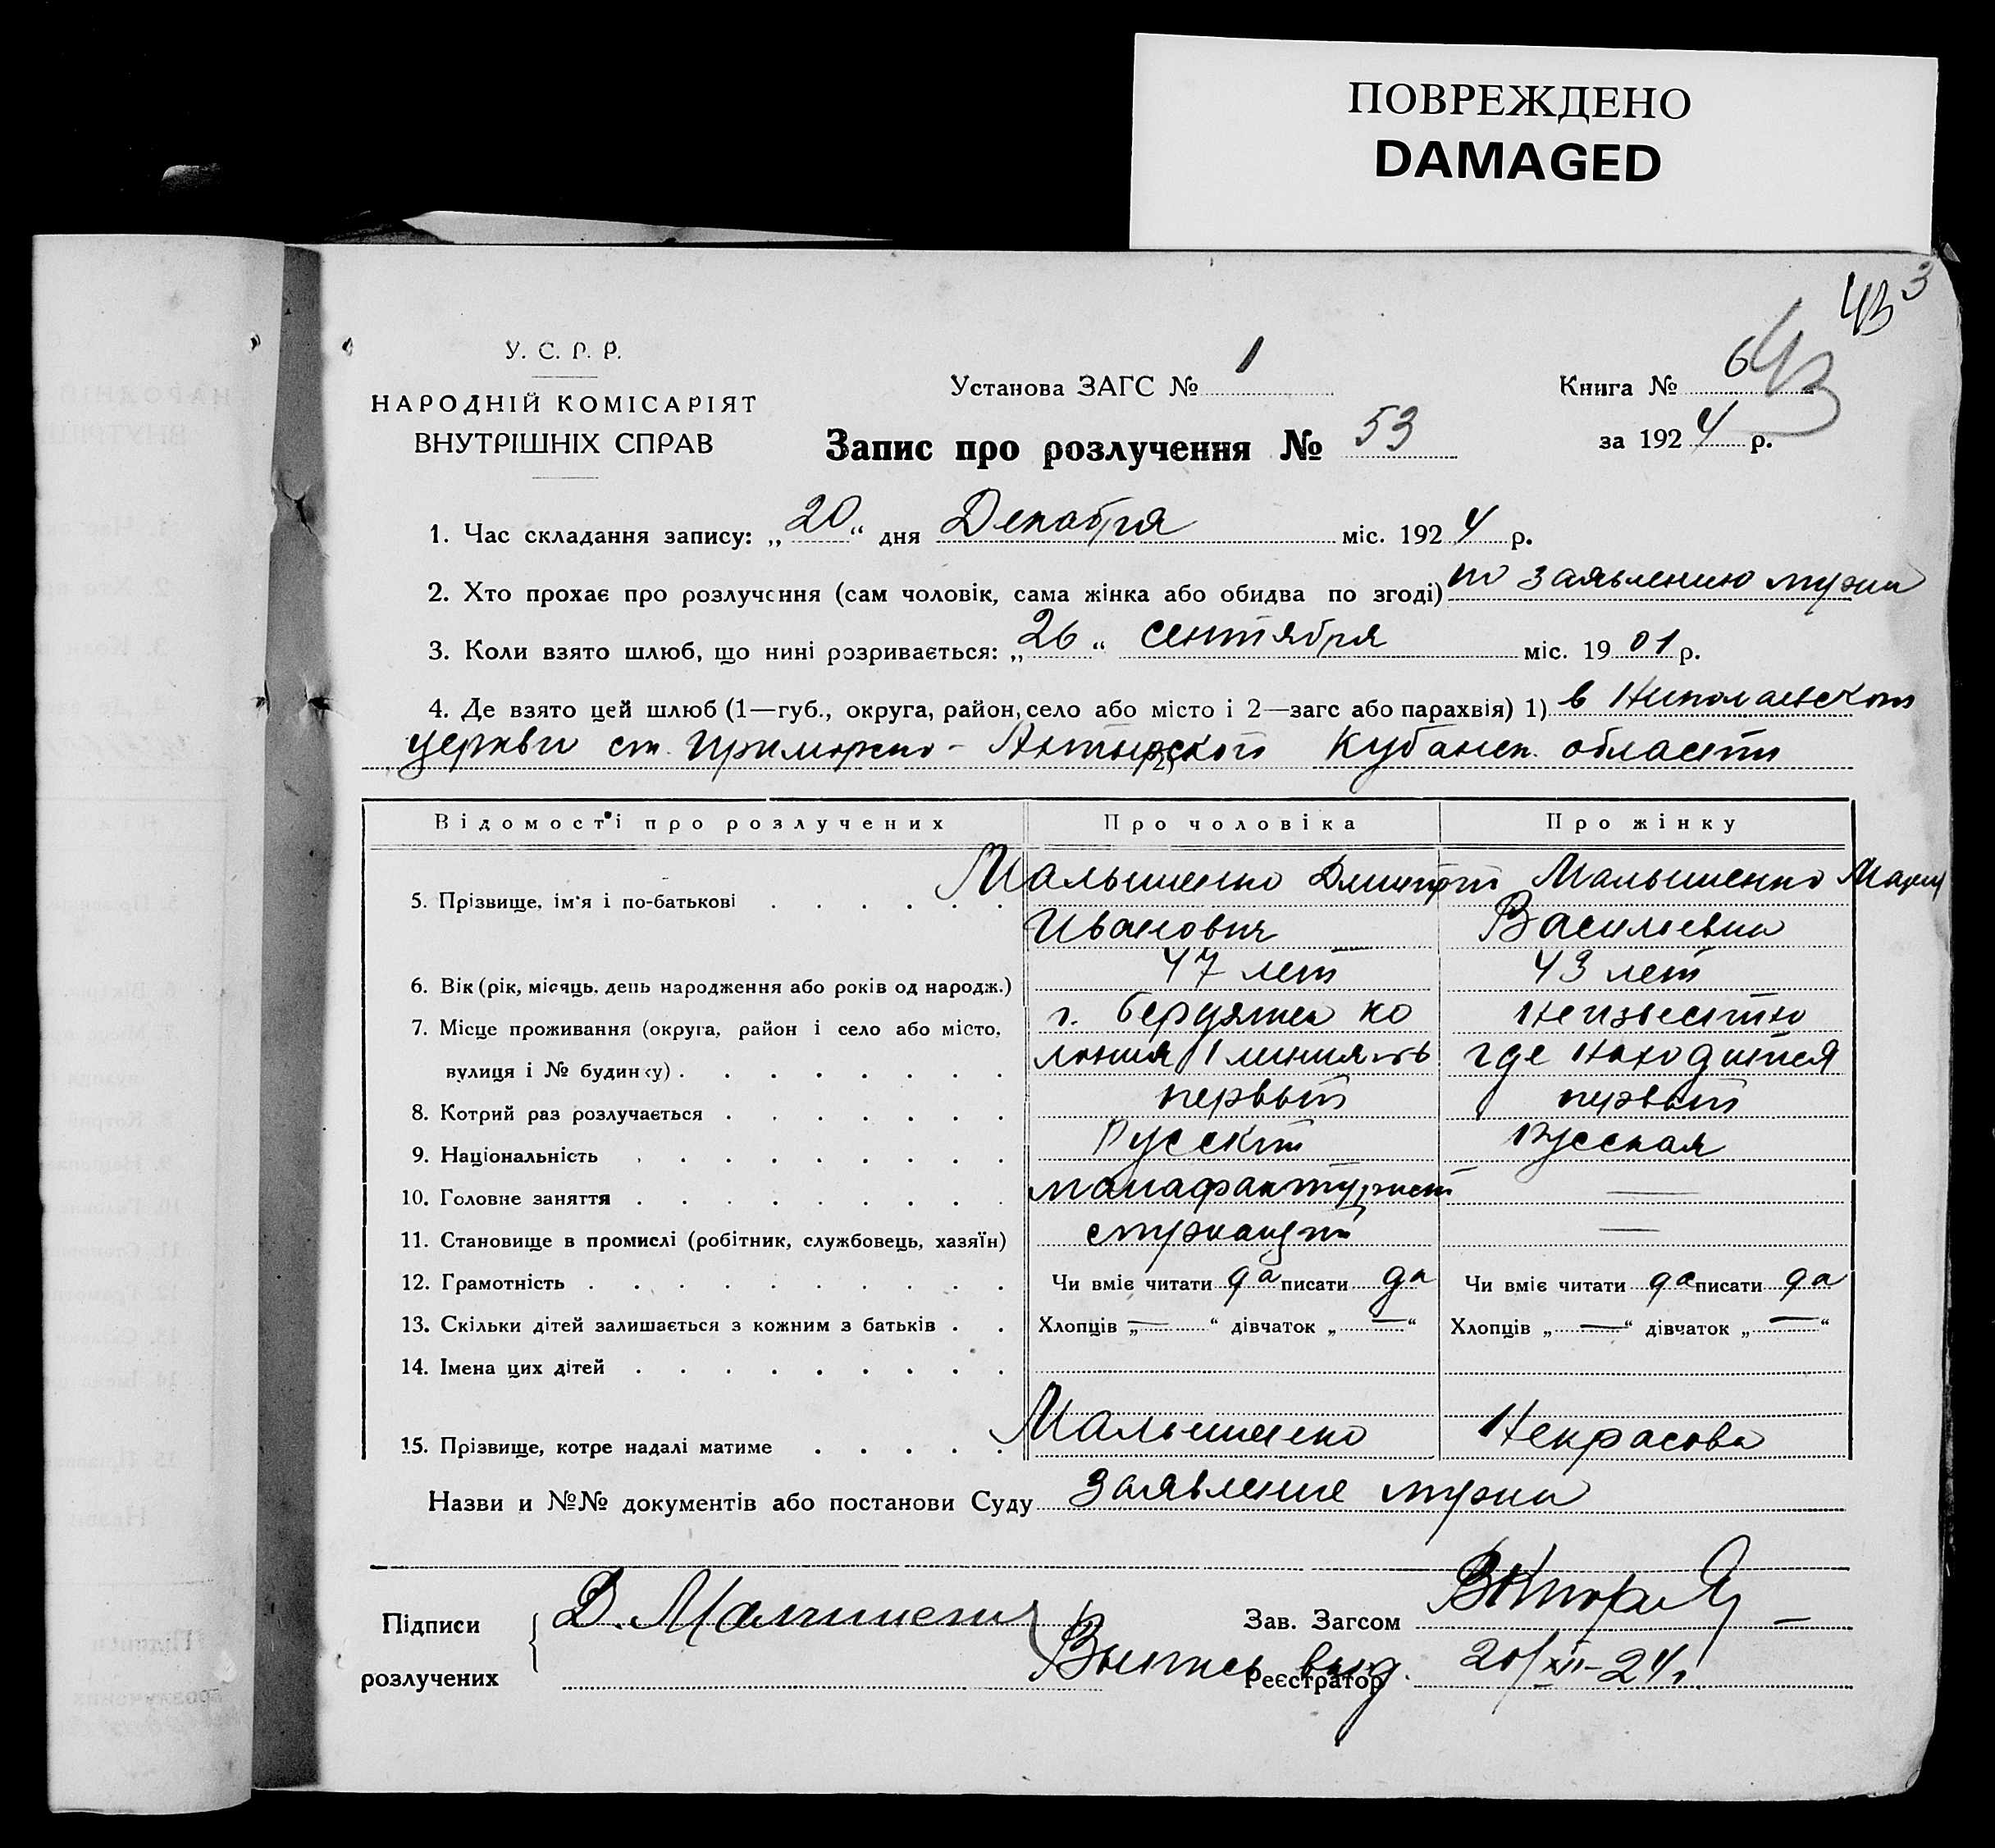 ПОВРЕЖДЕНО
DAMAGED
43 3
У. С. Р. Р.
НАРОДНІЙ КОМІСАРІЯТ
ВНУТРІШНІХ СПРАВ
Установа ЗАГС № 1
Запис про розлучення № 53
Книга № 6 43
за 1924 р.
1. Час складання запису: „20“ дня Декабря міс. 1924 р.
2. Хто прохає про розлучення (сам чоловік, сама жінка або обидва по згоді) по заявлению мужа
3. Коли взято шлюб, що нині розривається: „26“ сентября міс. 1901 р.
4. Де взято цей шлюб (1—губ., округа, район, село або місто і 2—загс або парахвія) 1) в Николаевской
церкви ст. Приморско-Ахтырской Кубанск. области
Відомості про розлучених Про чоловіка Про жінку
5. Прізвище, ім'я і по-батькові Малышенко Дмитрий Малышенко Мария
Иванович Васильевна
6. Вік (рік, місяць, день народження або років од народж.) 47 лет 43 лет
7. Місце проживання (округа, район і село або місто, г. Бердянск ко неизвестно
вулиця і № будинку) лония 1 линия где находится
8. Котрий раз розлучається первый первый
9. Національність Русский Русская
10. Головне заняття манафактурист —
11. Становище в промислі (робітник, службовець, хазяїн) служащий —
12. Грамотність Чи вміє читати да писати да Чи вміє читати да писати да
13. Скільки дітей залишається з кожним з батьків Хлопців „—“ дівчаток „—“ Хлопців „—“ дівчаток „—“
14. Імена цих дітей
15. Прізвище, котре надалі матиме Малышенко Некрасова
Назви и №№ документів або постанови Суду Заявление мужа
Підписи Д. Малышенко Зав. Загсом
розлучених Выпись выд. Реєстратор 20/XII-24 г.